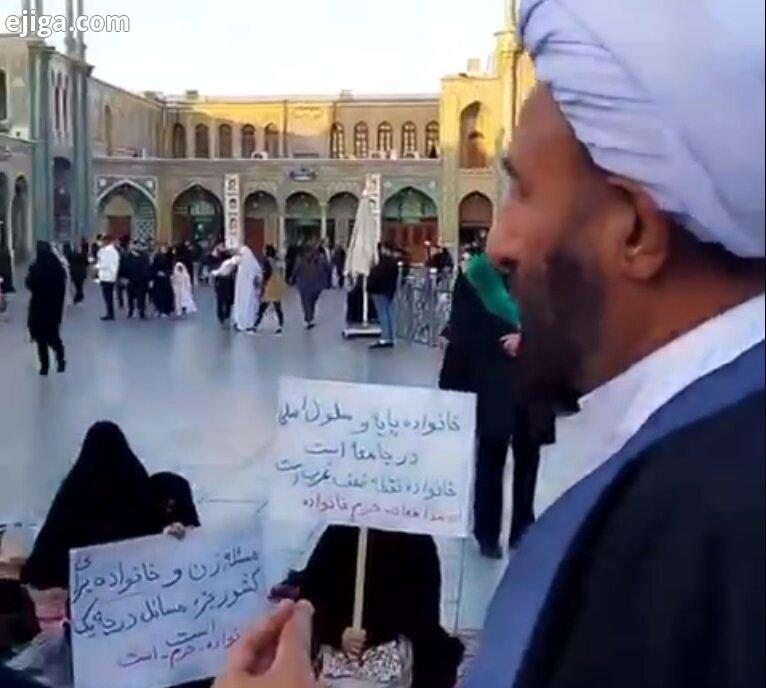 ejiga.com
خانواده پایه و سلول اصلی
در جامعه است
خانواده نقطه ضعف غرب است
مدافعان حرم خانواده
مسئله زن و خانواده برای
کشور جزء مسائل درجه یک
است
خانواده_حرم_است